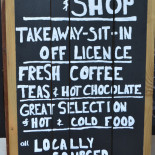 & SHOP
TAKEAWAY-SIT-IN
OFF LICENCE
FRESH COFFEE
TEAS & HOT CHOCOLATE
GREAT SELECTION
& HOT & COLD FOOD
all LOCALLY
SOURCED